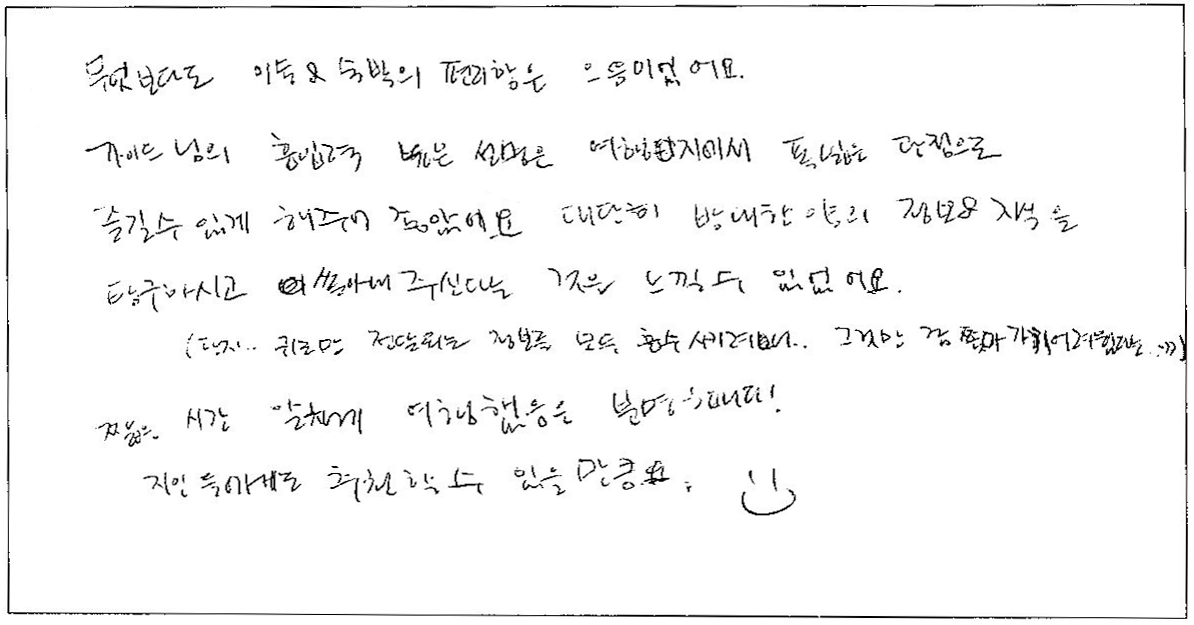 무엇보다도 이동 & 숙박의 편리함은 으뜸이었어요.
가이드님의 흡입력 높은 설명은 여행지에서 폭넓은 관점으로
즐길수 있게 해주어 좋았어요 대단히 방대한 양의 정보 & 지식을
탐구하시고 쏟아내 주신다는 것을 느낄수 있었어요.
(단지.. 귀로만 전달되는 정보를 모두 흡수 하려
짧은 시간 알차게 여행했음은 분명합니다!
지인들에게도 추천할 수 있을 만큼요.